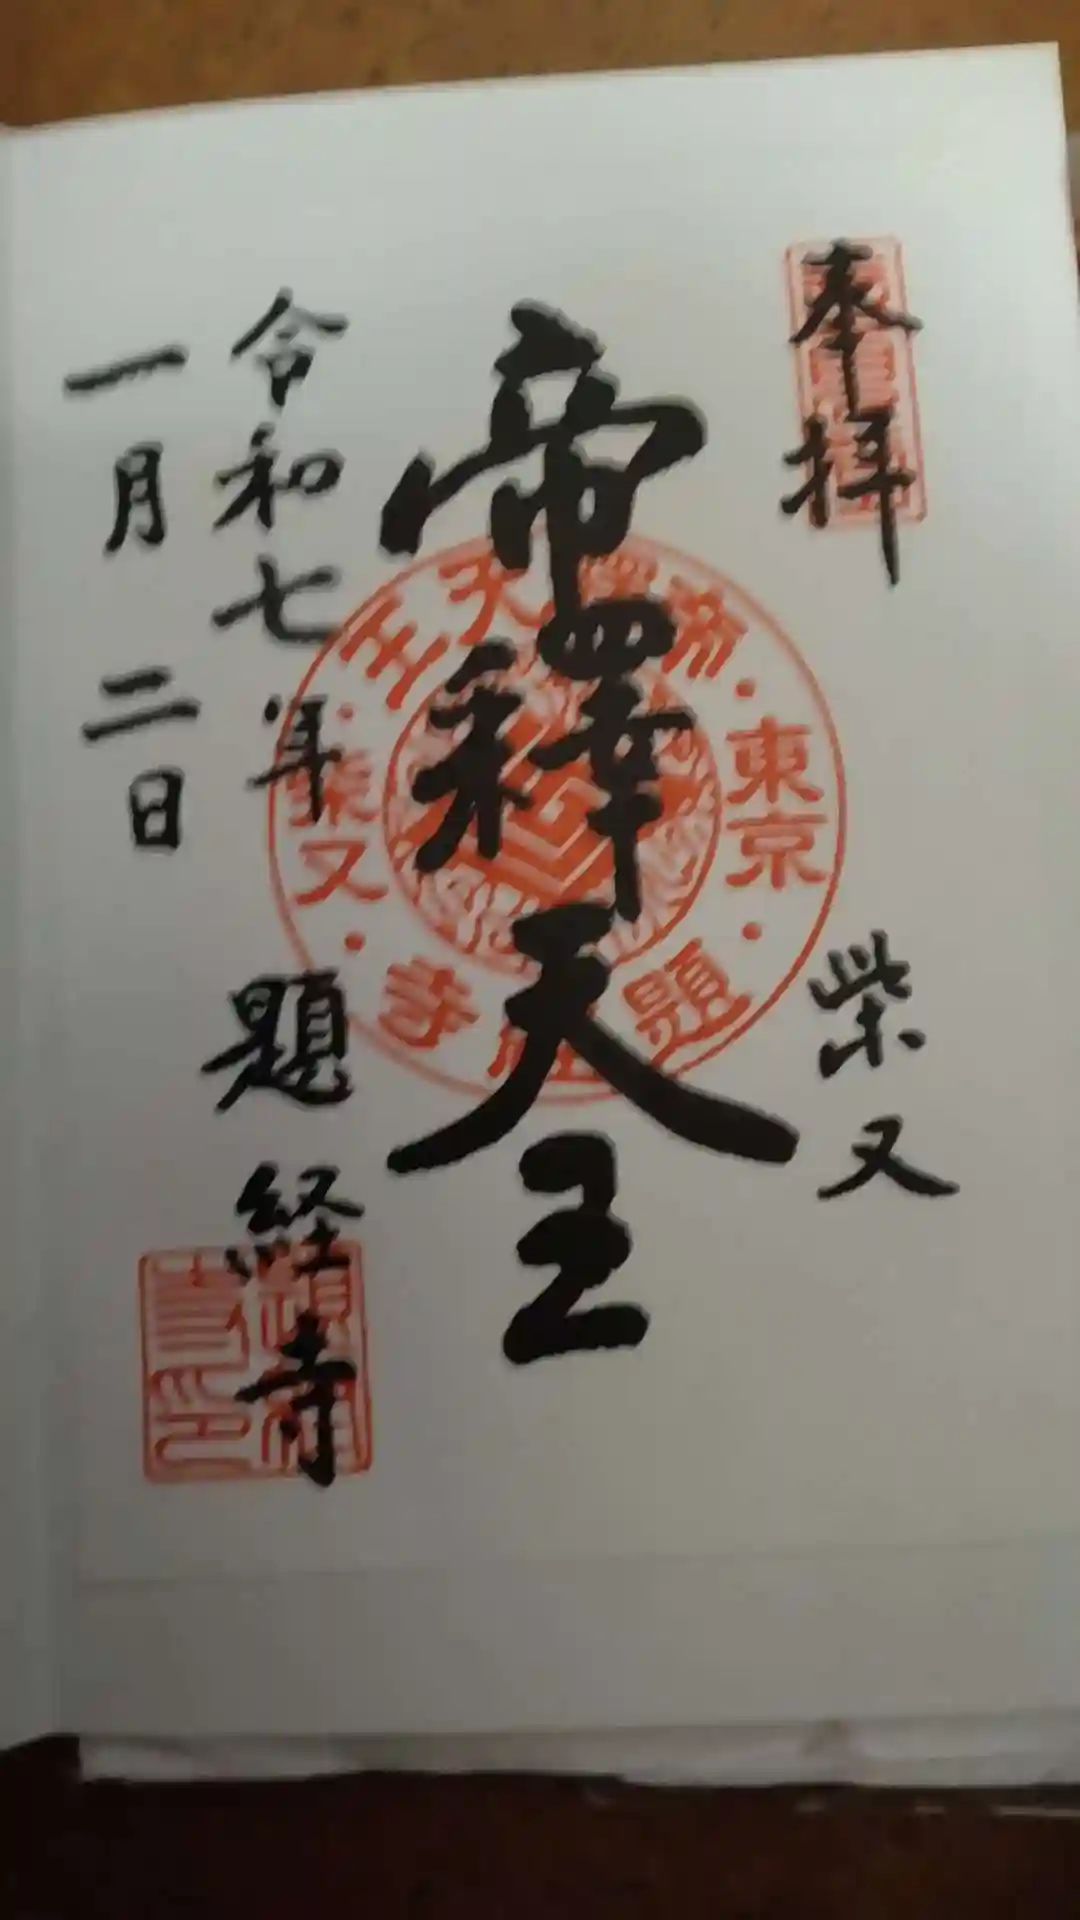 奉拝
柴又
帝釋天王
令和七年
一月二日
題経寺
帝釋天王
東京
柴又
題経寺